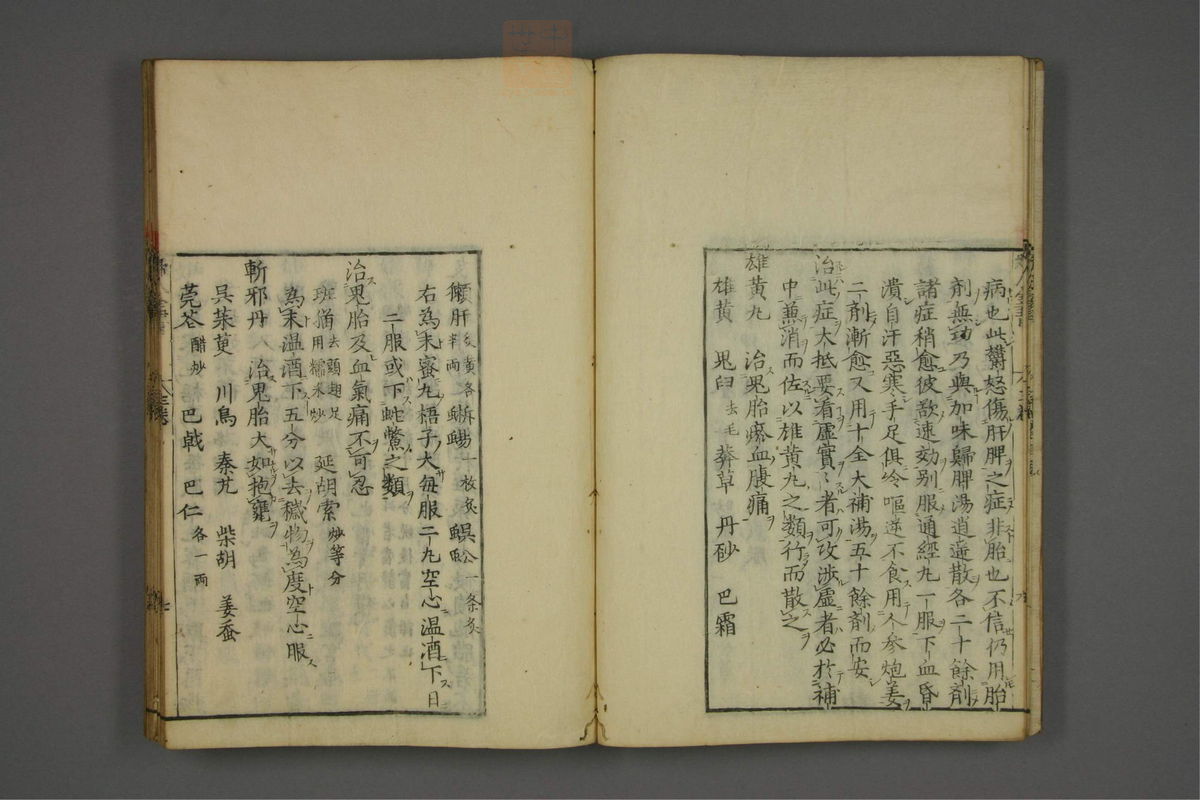 病也此欝怒傷肝脾之症非胎也不信仍用胎
劑無功乃與加味歸脾湯逍遥散各二十餘劑
諸症稍愈彼欲速効别服通經丸一服下血昏
潰自汗惡寒手足俱冷嘔逆不食用人参炮姜
二劑漸愈又用十全大補湯五十餘劑而安
治此症大抵要看虚實實者可攻渉虚者必於補
中兼消而佐以雄黄丸之類行而散之
雄黄丸 治鬼胎瘀血腹痛
雄黄 鬼臼去毛 莽草 丹砂 巴霜
獺肝炙黄 各半両 蜥蜴一枚炙 蜈蚣一条炙
右為末蜜丸梧子大毎服二丸空心温酒下日
二服或下蛇鱉之類
治鬼胎及血氣痛不可忍
斑猫去頭翅足用糯米炒 延胡索炒等分
為末温酒下五分以去穢物為度空心服
斬邪丹 治鬼胎大如抱甕
呉茱萸 川烏 秦艽 柴胡 姜蚕
芫花醋炒 巴戟 巴仁各一両